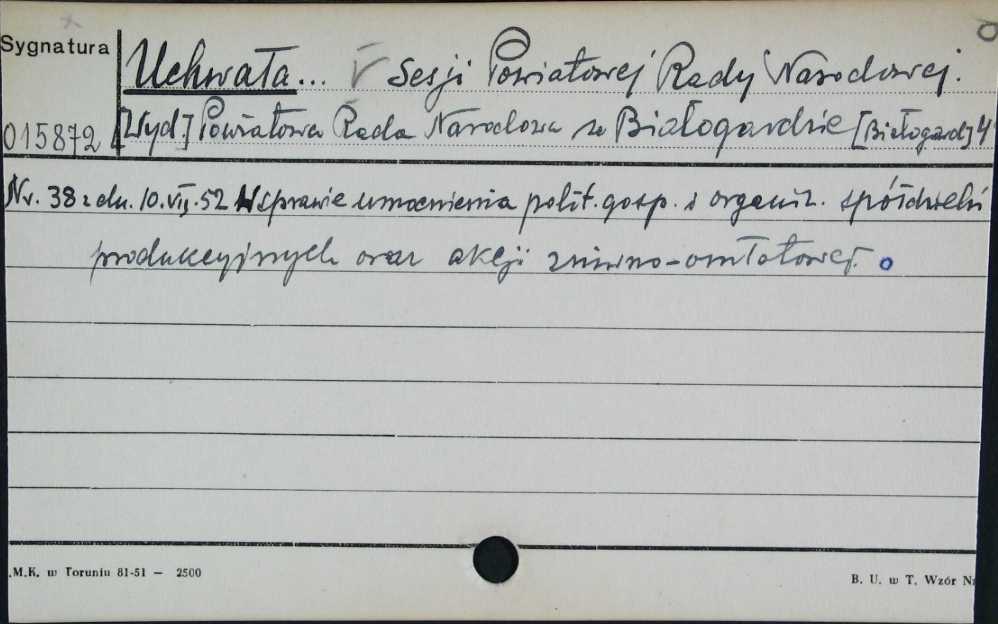 Sygnatura
Uchwała... V Sesji Powiatowej Rady Narodowej.
015872 [Wyd.] Powiatowa Rada Narodowa w Białogardzie [Białogard] 4°
Nr. 38 z dn. 10.VII.52 W sprawie umocnienia polit. gosp. i organiz. spółdzielni
produkcyjnych oraz akcji żniwno-omłotowej.
.M.K. w Toruniu 81-51 — 2500
B. U. w T. Wzór Nr